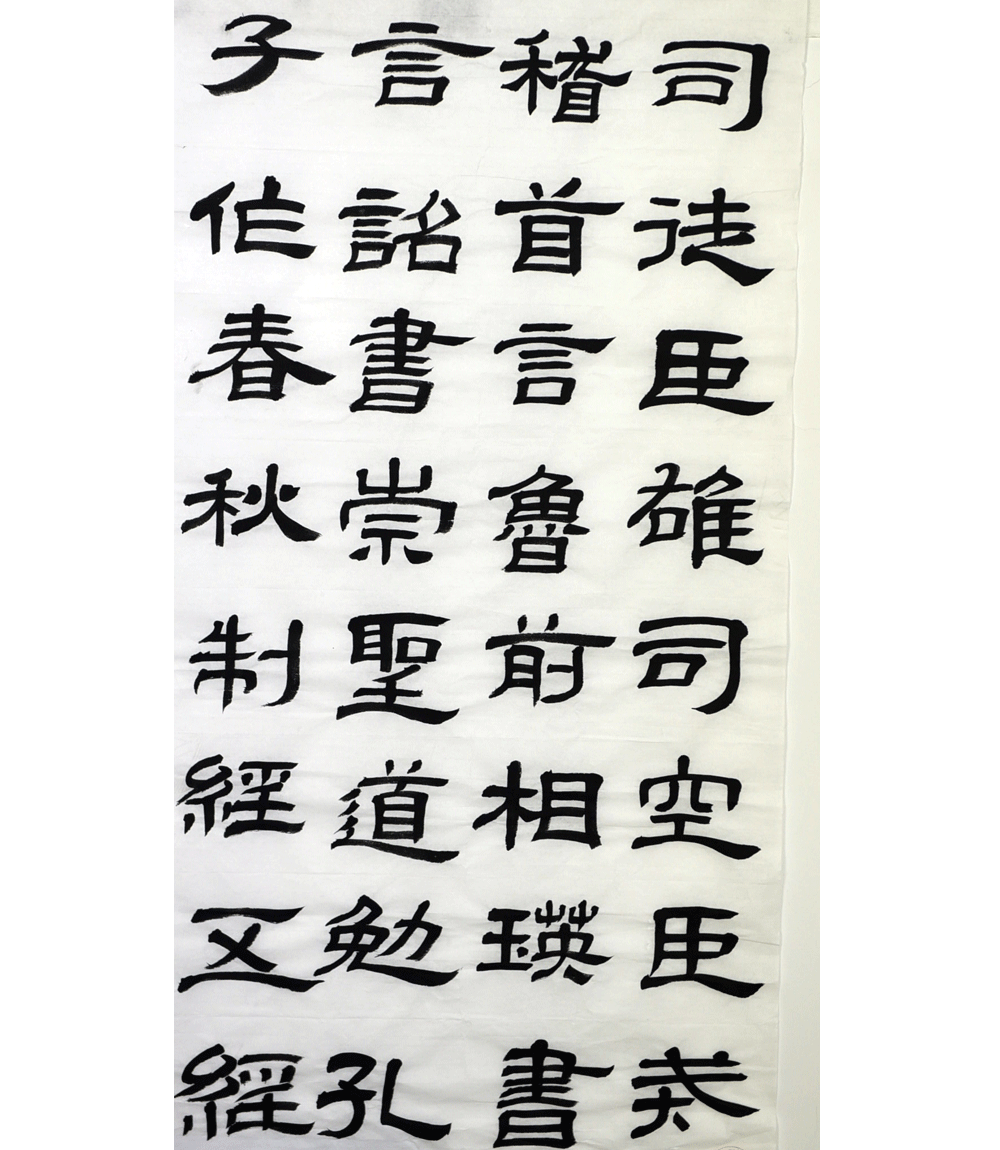 司徒臣雄司空臣戒
稽首言魯前相瑛書
言詔書崇聖道勉孔
子作春秋制經五經